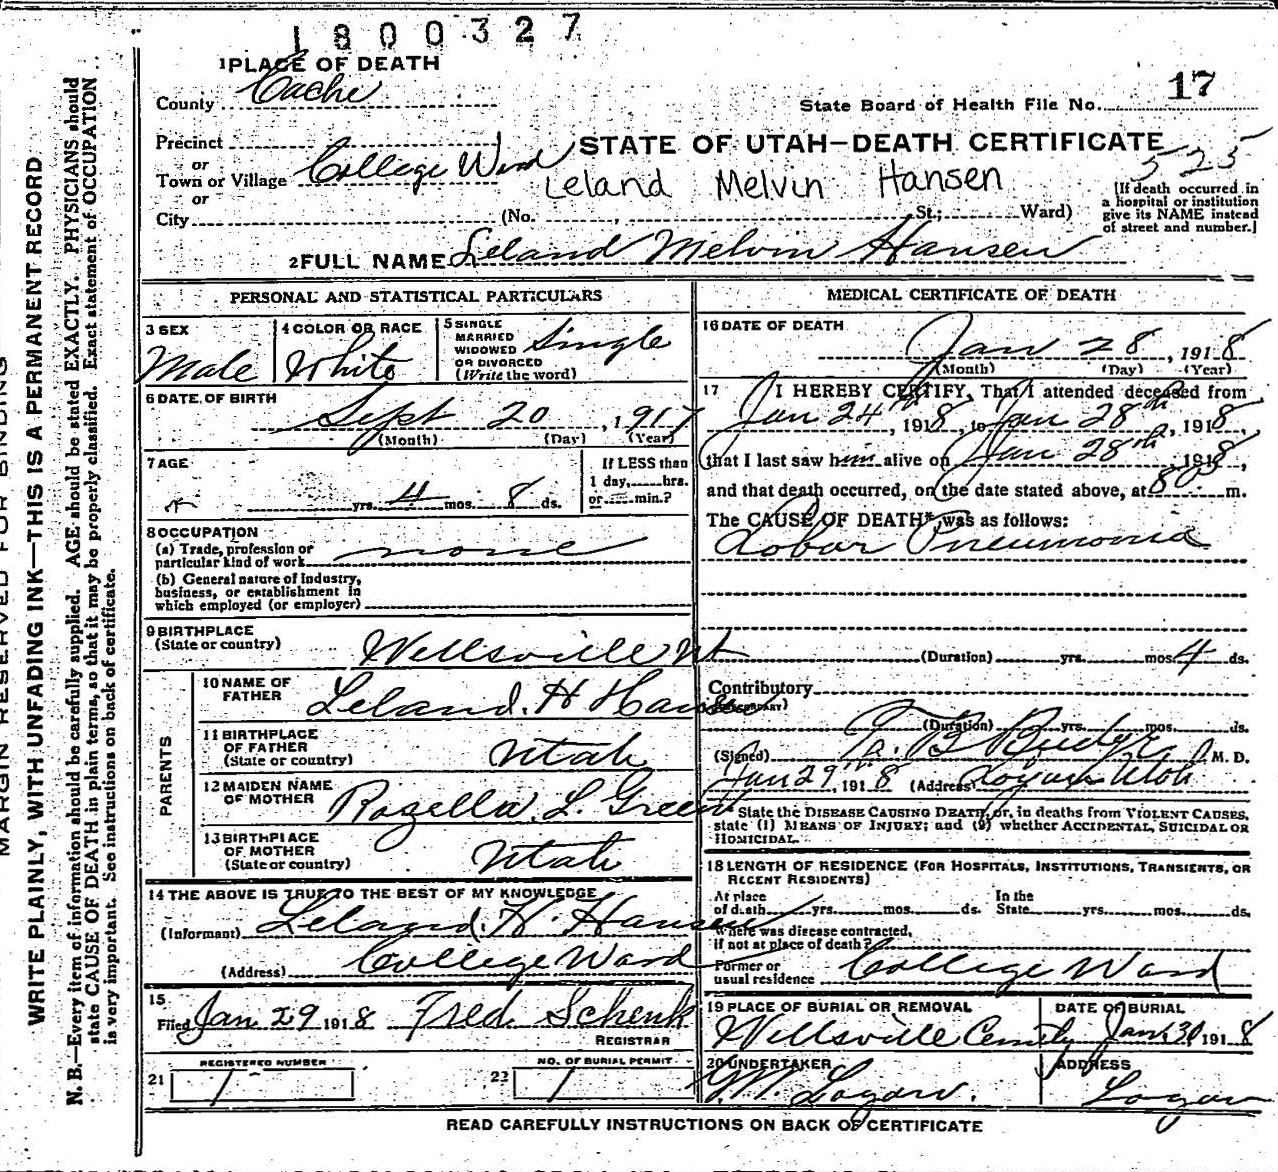 1800327
1 PLACE OF DEATH
County Cache
State Board of Health File No. 17
Precinct
or
Town or Village College Ward
or
City (No. , St.; Ward)
STATE OF UTAH—DEATH CERTIFICATE
525
Leland Melvin Hansen
[If death occurred in
a hospital or institution
give its NAME instead
of street and number.]
2 FULL NAME Leland Melvin Hansen
PERSONAL AND STATISTICAL PARTICULARS
3 SEX
Male
4 COLOR OR RACE
White
5 SINGLE
MARRIED
WIDOWED
OR DIVORCED
(Write the word)
Single
6 DATE OF BIRTH
Sept 20, 1917
(Month) (Day) (Year)
7 AGE
yrs. 4 mos. 8 ds.
If LESS than
1 day, hrs.
or min.?
8 OCCUPATION
(a) Trade, profession or
particular kind of work none
(b) General nature of Industry,
business, or establishment in
which employed (or employer)
9 BIRTHPLACE
(State or country) Wellsville Ut
PARENTS
10 NAME OF
FATHER Leland. H Hansen
11 BIRTHPLACE
OF FATHER
(State or country) Utah
12 MAIDEN NAME
OF MOTHER Rozella L. Green
13 BIRTHPLACE
OF MOTHER
(State or country) Utah
14 THE ABOVE IS TRUE TO THE BEST OF MY KNOWLEDGE
(Informant) Leland. H. Hansen
(Address) College Ward
15
Filed Jan 29 1918 Fred. Schenk
REGISTRAR
REGISTERED NUMBER
21 1
NO. OF BURIAL PERMIT
22 1
MEDICAL CERTIFICATE OF DEATH
16 DATE OF DEATH
Jan 28, 1918
(Month) (Day) (Year)
17 I HEREBY CERTIFY, That I attended deceased from
Jan 24th, 1918, to Jan 28th, 1918,
that I last saw him alive on Jan 28th 1918,
and that death occurred, on the date stated above, at m.
The CAUSE OF DEATH* was as follows:
Lobar Pneumonia
(Duration) yrs. mos. 4 ds.
Contributory
(SECONDARY)
(Duration) yrs. mos. ds.
(Signed) Budge M. D.
Jan 29th, 1918 (Address) Logan Utah
* State the DISEASE CAUSING DEATH, or, in deaths from VIOLENT CAUSES,
state (1) MEANS OF INJURY; and (2) whether ACCIDENTAL, SUICIDAL OR
HOMICIDAL.
18 LENGTH OF RESIDENCE (FOR HOSPITALS, INSTITUTIONS, TRANSIENTS, OR
RECENT RESIDENTS)
At place
of death yrs. mos. ds.
In the
State yrs. mos. ds.
Where was disease contracted,
if not at place of death?
Former or
usual residence College Ward
19 PLACE OF BURIAL OR REMOVAL
Wellsville
DATE OF BURIAL
Jan. 30 1918
20 UNDERTAKER
Logan.
ADDRESS
Logan
READ CAREFULLY INSTRUCTIONS ON BACK OF CERTIFICATE
MARGIN RESERVED FOR BINDING
WRITE PLAINLY, WITH UNFADING INK—THIS IS A PERMANENT RECORD
N. B.—Every item of information should be carefully supplied. AGE should be stated EXACTLY. PHYSICIANS should
state CAUSE OF DEATH in plain terms, so that it may be properly classified. Exact statement of OCCUPATION
is very important. See instructions on back of certificate.